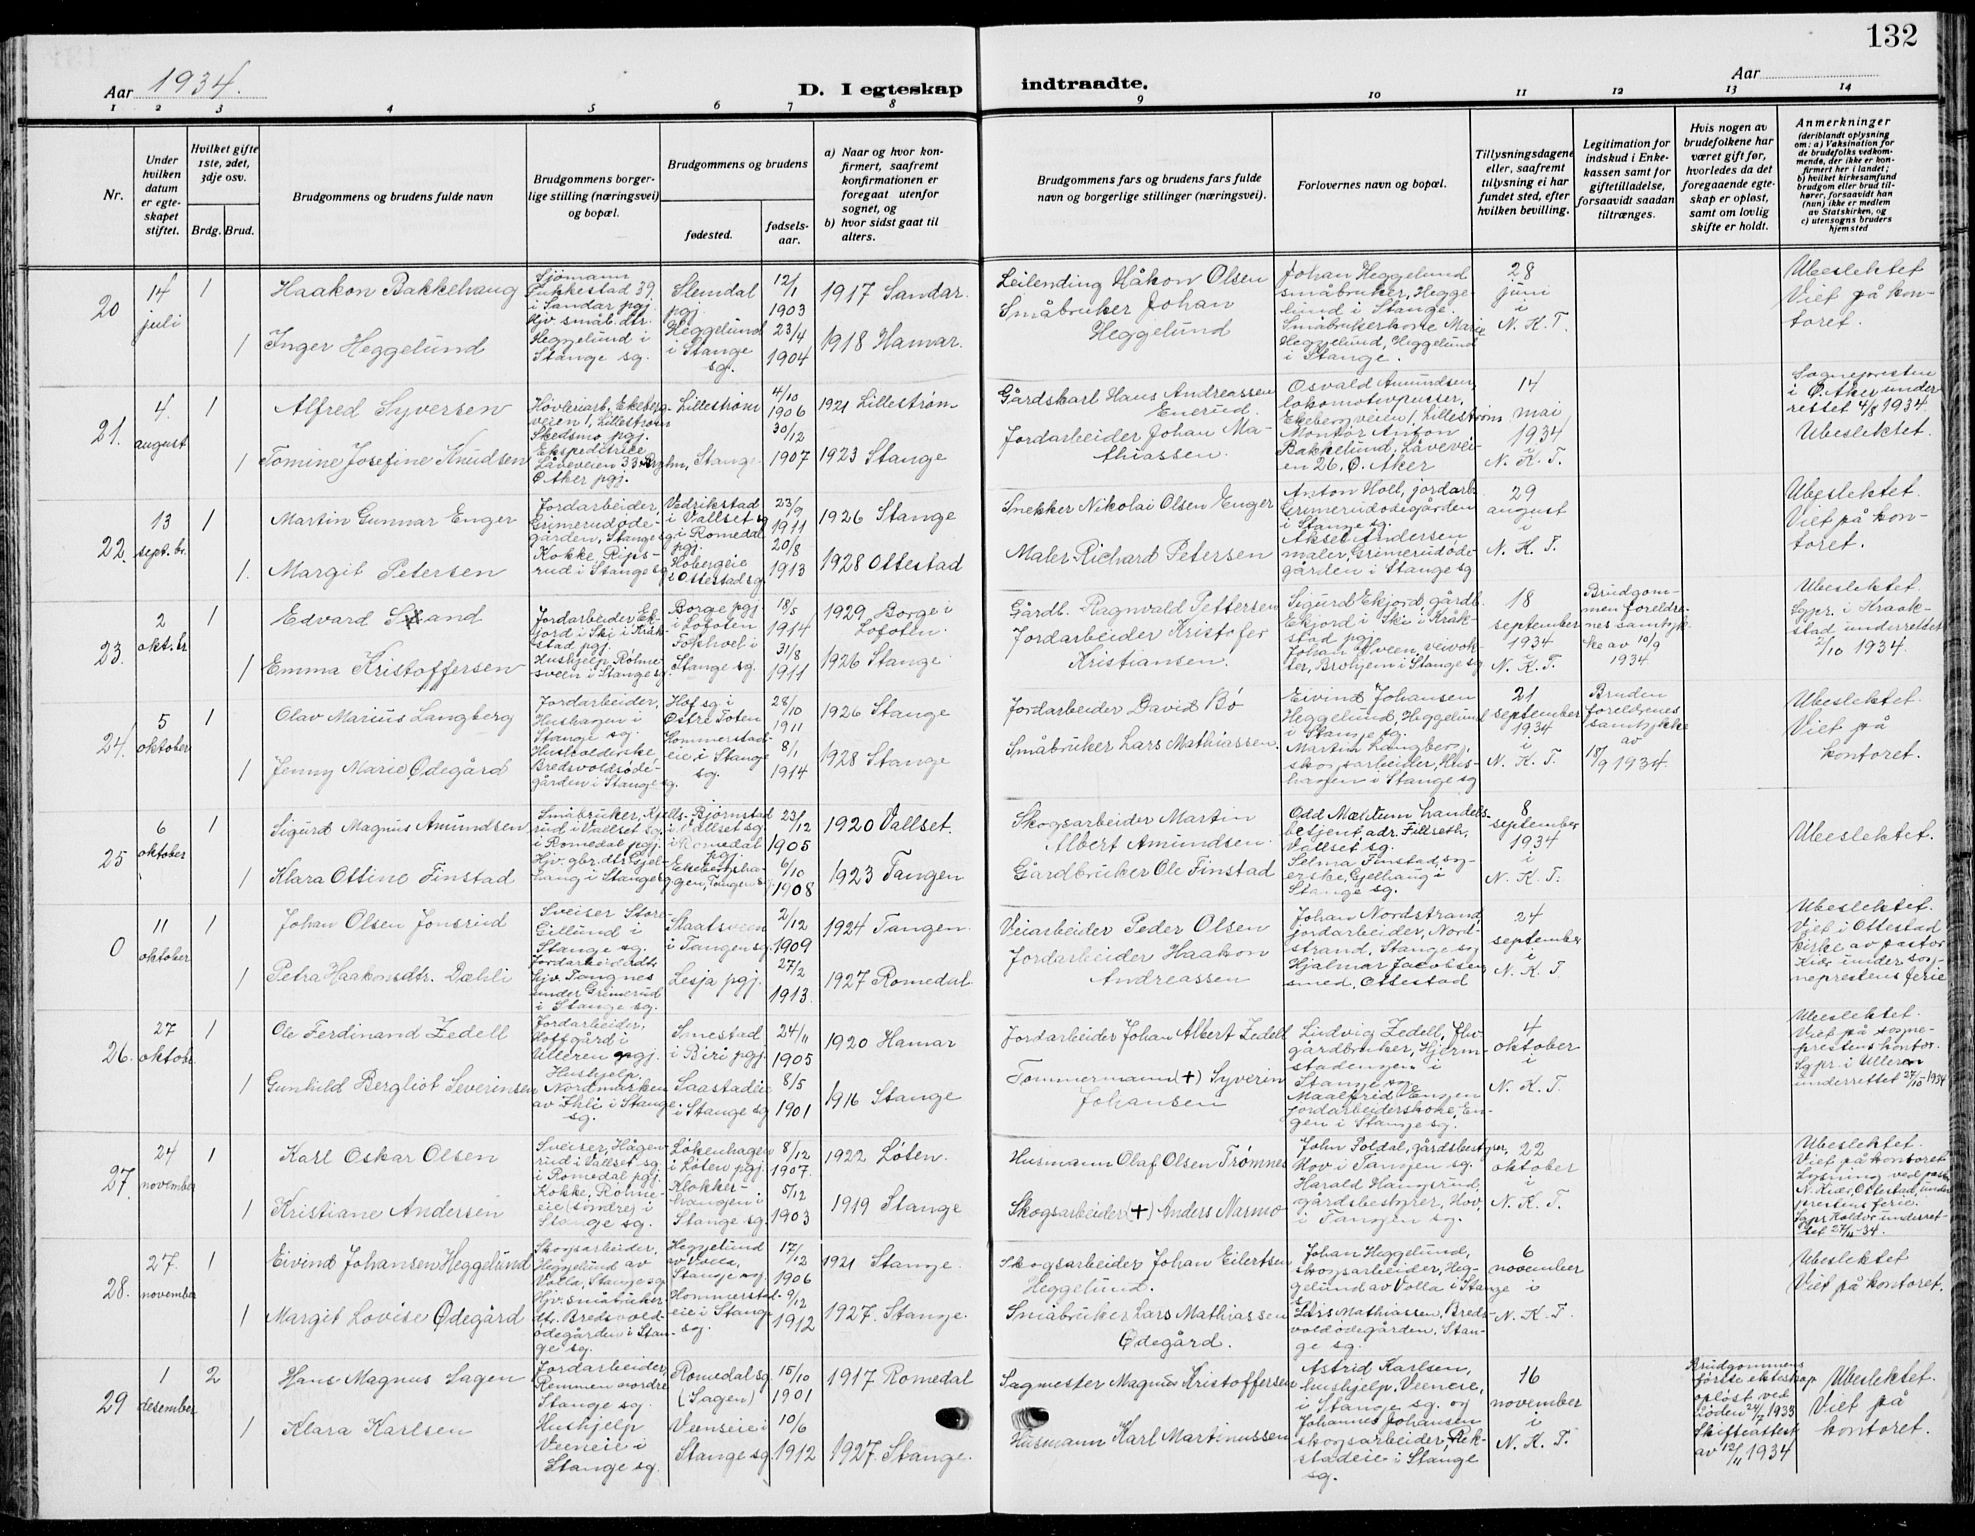 132
Aar 1934.
D. I egteskap indtraadte.
Aar
1 2 3 4 5 6 7 8 9 10 11 12 13 14
Nr.
Under hvilken datum er egteskapet stiftet.
Hvilket gifte 1ste, 2det, 3dje osv.
Brdg. Brud.
Brudgommens og brudens fulde navn
Brudgommens borgerlige stilling (næringsvei) og bopæl.
Brudgommens og brudens
fødested.
fødselsaar.
a) Naar og hvor konfirmert, saafremt konfirmationen er foregaat utenfor sognet, og
b) hvor sidst gaat til alters.
Brudgommens fars og brudens fars fulde navn og borgerlige stillinger (næringsvei).
Forlovernes navn og bopæl.
Tillysningsdagene eller, saafremt tillysning ei har fundet sted, efter hvilken bevilling.
Legitimation for indskud i Enkekassen samt for giftetilladelse, forsaavidt saadan tiltrænges.
Hvis nogen av brudefolkene har været gift før, hvorledes da det foregaaende egteskap er opløst, samt om lovlig skifte er holdt.
Anmerkninger
(deriblandt oplysning om: a) Vaksination for de brudefolks vedkommende, der ikke er konfirmert her i landet; b) hvilket kirkesamfund brudgom eller brud tilhører, forsaavidt han (hun) ikke er medlem av Statskirken, og c) utensogns bruders hjemsted
20
14 juli
1
Haakon Bakkehaug
Sjømann
39,
i Sandar pgj.
Slemdal pgj.
12/1 1903
1917 Sandar.
Leilending Håkon Olsen
Johan Heggelund
småbruker, Heggelund i Stange.
28 juni
i
N. K. T.
Ubeslektet
Viet på kontoret.
1
Inger Heggelund
Hjv. småb. dtr.
Heggelund i
Stange sg.
Heggelund
i Stange
sg.
23/4 1904
1918 Hamar.
Småbruker Johan
Heggelund
Småbrukerkone Marie
Heggelund, Heggelund
i Stange.
21.
4. august
1
Alfred Syversen
Høvleriarb. Ekebergveien 1, Lillestrøm
Skedsmo pgj.
Lillestrøm
4/10 1906
1921 Lillestrøm
Gårdskarl Hans Andreassen
Enerud.
Osvald Amundsen,
lokomotivpusser,
Ekebergveien 1, Lillestrøm
14 mai 1934
i
N. K. T.
Sognepresten
i Ø. Aker underrettet 4/8 1934.
Ubeslektet.
1
Tomine Josefine Knudsen
Ekspeditrice
Låveveien 33
Ø. Aker pgj.
Stange
30/12 1907
1923 Stange
Jordarbeider Johan Mathiassen.
Montør Anton
Bakkelund, Låveveien 26, Ø. Aker
22.
13 sept.br.
1
Martin Gunnar Enger
Jordarbeider,
Grimerudødegården, Stange sg
Vedrikstad
i Vallset sg
i Romedal
pgj.
23/9 1911
1926 Stange
Snekker Nikolai Olsen Enger
Anton Holt, jordarb.
Grimerudødegården
i Stange sg.
29 august
i
N. K. T.
Ubeslektet.
Viet på kontoret.
1.
Margit Petersen
Kokke, Ripsrud i Stange sg
Hobergeie
i Ottestad sg
20/8 1913
1928 Ottestad
Maler Richard Petersen
Aksel Andersen
maler, Grimerudødegården i Stange sg
23.
2 okt.br
1
Edvard Strand
Jordarbeider, Ekjord i Ski i Kråkstad pgj.
Borge pgj
i Lofoten
18/5 1914
1929 Borge i
Lofoten.
Gårdb. Ragnvald Pettersen
Sigurd Ekjord, gårdb.
Ekjord i Ski i Kråkstad pgj.
18 september 1934
i
N. K. T.
Brudgommen foreldrenes samtykke av 10/9 1934
Ubeslektet.
Sgpr. i Kraakstad underrettet
2/10 1934.
1
Emma Kristoffersen
Hushjelp Røhnesveen i Stange sg.
Stange sg.
31/8 1911
1926 Stange
Jordarbeider Kristofer
Kristiansen.
Johan Hveen, veivokter, Brohjem i Stange sg
24.
5 oktober
1
Olav Marius Langberg
Jordarbeider,
Hushagen i
Stange sg.
Hof sg i
Østre Toten
28/10 1911
1926 Stange
Jordarbeider David Bø
Eivind Johansen
Heggelund, Heggelund
i Stange sg.
21 september 1934
i
N. K. T.
Bruden
foreldrenes
samtykke
av
18/9 1934.
Ubeslektet
Viet på
kontoret.
1
Jenny Marie Ødegård
Husholderske
Bredsvoldsødegården i Stange sg.
Hommerstadeie i Stange
sg.
8/1 1914
1928 Stange
Småbruker Lars Mathiassen.
Martin Langberg,
skogsarbeider, Hushagen i Stange sg
25
6 oktober
1
Sigurd Magnus Amundsen
Småbruker, Kjellsrud i Vallset sg.
i Romedal pgj.
Bjørnstad
i Vallset sg.
i Romedal
pgj.
23/12 1905
1920 Vallset.
Skogsarbeider Martin
Albert Amundsen.
Odd Mælum handelsbetjent adr. Fillseth,
Vallset sg.
8 september 1934
i
N. K. T.
Ubeslektet.
1
Klara Ottine Finstad
Hjv. gbr. dtr. Gjelhaug i Stange sg
Ekeberghagen, Tangen sg.
6/10 1908
1923 Tangen
Gårdbruker Ole Finstad
Selma Finstad, syerske, Gjelhaug i
Stange sg.
0
11 oktober
1
Johan Olsen Jonsrud
Sveiser Store
Gillund i
Stange sg.
Staatsveen
i Tangen sg.
2/12 1909
1924 Tangen.
Veiarbeider Peder Olsen
Johan Nordstrand
jordarbeider, Nordstrand, Stange sg
24 september
i
N. K. T
Ubeslektet.
Viet i Ottestad
kirke av pastor
Kiær under sogneprestens ferie
1
Petra Haakonsdtr. Dæhli
Jordarbeiderdtr
Hjv. Tangnes
under Grimerud
i Stange sg.
Lesja pgj.
27/2 1913.
1927 Romedal.
Jordarbeider Haakon
Andreassen
Hjalmar Jacobsen
smed, Ottestad
26.
27 oktobr.
1
Ole Ferdinand Zedell
Jordarbeider,
Hoffgård i
Ulleren pgj.
Smestad
i Biri pgj.
24/11 1905
1920 Hamar
Jordarbeider Johan Albert Zedell
Ludvig Zedell,
gårdbruker, Hjermstadengen i
Stange sg
4 oktober
i
N. K. T.
Ubeslektet.
Viet på sogneprestens kontor.
Sgpr. i Ulleren
underrettet 27/10-1934
1
Gunhild Bergliot Severinsen
Hushjelp.
Nordmarken
av Ihli i Stange
sg.
Saastadeie
i Stange sg
8/5 1901
1916 Stange
Tømmermann (+) Syverin
Johansen
Maalfrid Engen
jordarbeiderskone, Engen i Stange sg.
27.
24 november
1
Karl Oskar Olsen
Sveiser, Hågenrud i Vallset sg.
i Romedal pgj.
Løkenhagen
i Løten pgj.
8/12 1907.
1922 Løten.
Husmann Olaf Olsen Trømnes
John Foldal, gårdsbestyrer,
Hov i Tangen sg.
22 oktober
i
N. K. T.
Ubeslektet.
Viet på kontoret.
Lysning ved pastor
N. Kiær, Ottestad, under
prestens ferie.
Sgpr. Koldor underrettet 27/11-34.
1
Kristiane Andersen
Kokke, Røhneeie (søndre) i
Stange sg.
Klokkerhaugen i
Stange sg.
5/12 1903
1919 Stange
Skogsarbeider (+) Anders Narmo
Harald Haugsrud,
gårdsbestyrer, Hov,
i Tangen sg.
28.
27. november
1
Eivind Johansen Heggelund
Skogsarbeider,
Heggelund av
Volla, Stange sg
Heggelund
av Volla,
Stange sg.
17/12 1906
1921 Stange.
Skogsarbeider Johan Eilertsen
Heggelund.
Johan Heggelund,
skogsarbeider, Heggelund av Volla i Stange
6 november
i
N. K. T.
Ubeslektet
Viet på kontoret.
1
Margit Lovise Ødegård
Hjv. småbrukerdtr. Bredsvoldødegården i Stange sg.
Hommerstadeie i Stange
sg.
9/12 1912
1927. Stange.
Småbruker Lars Mathiassen
Ødegård.
Lars Mathiassen, Bredsvoldødegården, Stange sg.
29
1 desember
2
Hans Magnus Sagen
Jordarbeider,
Remmen nordre
Stange sg.
Romedal sg.
(Sagen)
15/10 1901
1917 Romedal
Sagmester Magnus Kristoffersen
Astrid Karlsen,
hushjelp, Veeneie,
i Stange sg. og
16 november
i
N. K. T.
Brudgommens
første ekteskap
opløst ved
døden 24/7 1933
Skifteattest
av 12/11 1934
Ubeslektet.
Viet på
kontoret.
1
Klara Karlsen
Hushjelp
Veeneie i
Stange sg.
Veenseie i
Stange sg.
10/6 1912
1927. Stange.
Husmann Karl Martinussen
Johannes Johansen
skogsarbeider, Rekstadeie i Stange
sg.